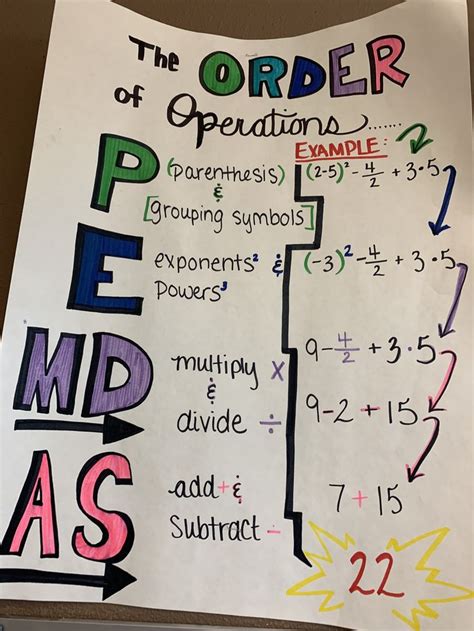 The ORDER
of Operations......
EXAMPLE:
P (parenthesis)
&
[grouping symbols]
(2-5)² - 4/2 + 3·5
E exponents² &
Powers³
(-3)² - 4/2 + 3·5
MD multiply ×
&
divide ÷
9 - 4/2 + 3·5
9-2 + 15
AS add+ &
Subtract -
7 + 15
22